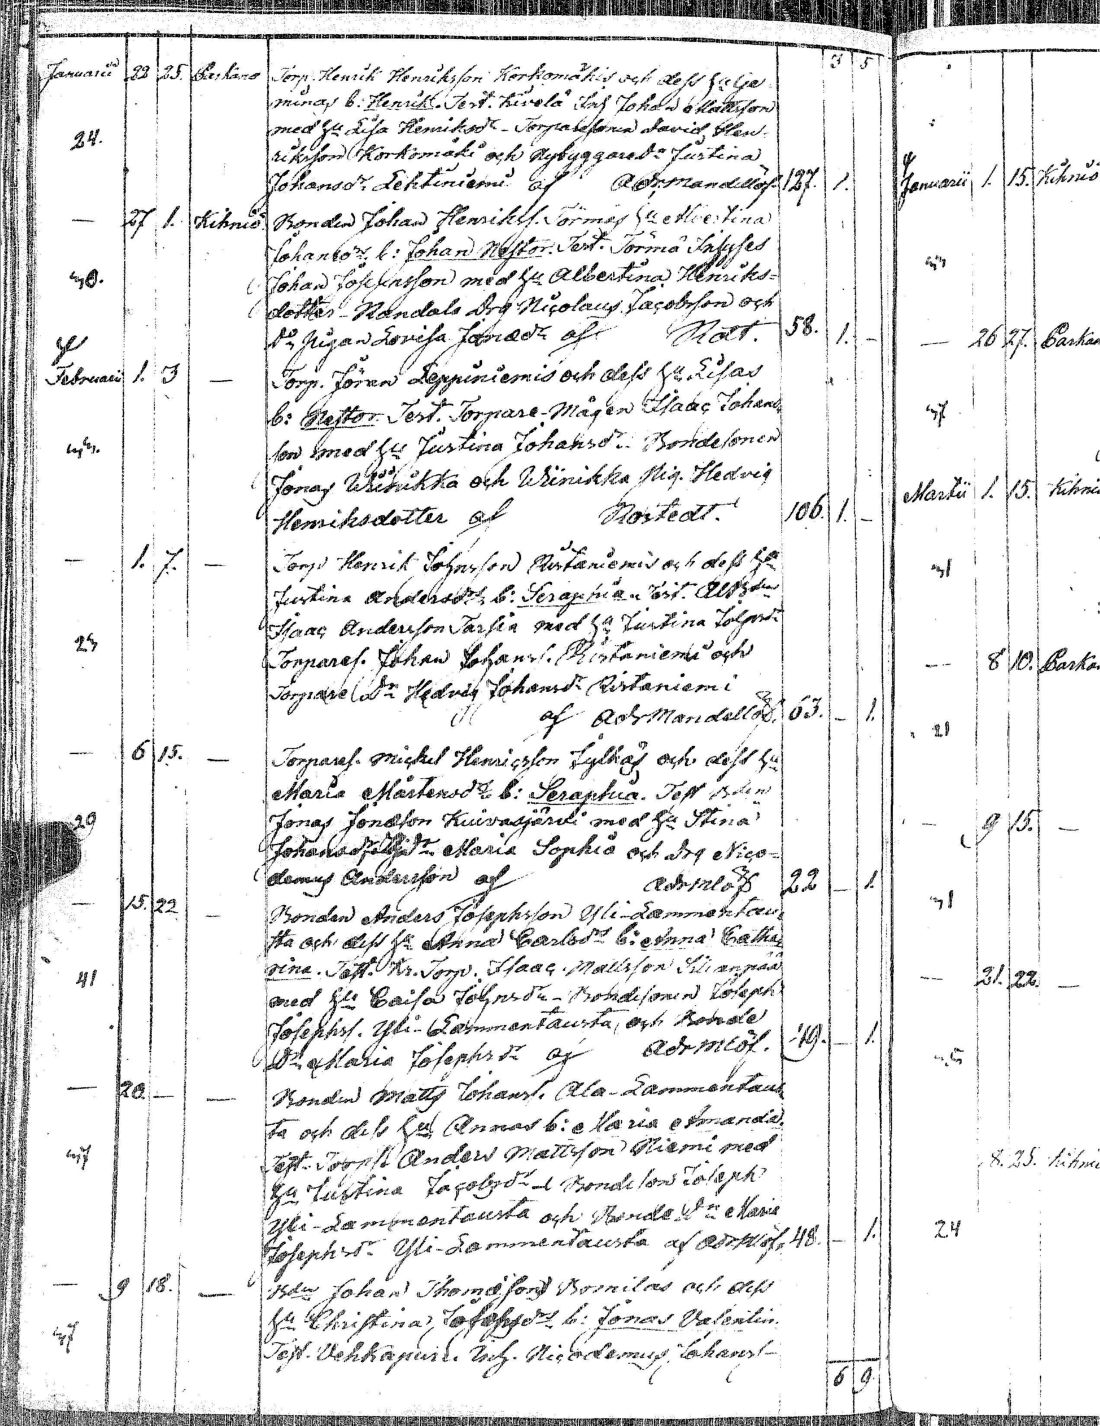 3 5
Januarii 22 25. Parkano Torp. Henrik Henriksson Korkomäkis och dess hu Lisa
minas b: Henrik. Test. Kivelä Inh Johan Mattsson
med hu Lisa Henriksdr - Torparesonen David Hen-
24.
riksson Korkomäki och Nybyggare Dn Justina
Johansdr. Lehtiniemi af Adr Mandellöf. 127. 1.
— 27 1. Kihniö Bonden Johan Henrikss. Törmäs hu Albertina
Johansdrs b: Johan Nestor. Test. Törmä Inhyses
Johan Josephsson med hu Albertina Henriks-
dotter - Drg Nicolaus Jacobsson och
Dn Pigan Lovisa Jonædr af Rost. 58. 1. -
Februarii 1. 3 — Torp. Jöran Leppiniemis och dess hu Lisas
b: Nestor. Test. Torpare-Mågen Isaac Johans-
son med hu Justina Johansdr - Bondesonen
Jonas Wiinikka och Wiinikka Pig. Hedvig
Henriksdotter af Rostedt. 106. 1. -
— 1. 7. — Torp Henrik Johnsson Ristaniemis och dess hu
Justina Andersdrs b: Seraphia. Test.
Isaac Andersson Tarsia med hu Justina
23
Torpares. Johan Johanss. Ristaniemi och
Torpare Dn Hedvig Johansdr Ristaniemi
af Adr Mandellöf. 63. - 1.
— 6 15. — Torpares. Michel Henricsson Jylhäs och dess hu
Maria Mårtensdrs b: Seraphia. Test Bden
29
Jonas Jonæson Kuivasjärvi med hu Stina
Johansdr Maria Sophia och Drg Nico-
demus Andersson af Adr Mlöf 22 - 1.
— 15. 22 — Bonden Anders Josephsson Yli-Lammentaus-
ta och dess hu Anna Carlsdrs b: Anna Catha-
rina. Test. Kr. Torp. Isaac Mattsson
41
med hu Caisa Johnsdr - Bondesonen Joseph
Josephss. Yli-Lammentausta, och Bonde
Dn Maria Josephsdr af Adr Mlöf. 49. - 1.
— 20. — — Bonden Matts Johanss. Ala-Lammentaus-
ta och dess hu Annas b: Maria Amanda.
Test. Anders Mattsson Niemi med
hu Justina Jacobsdr - Bondeson Joseph
Yli-Lammentausta och Bonde Dn Maria
Josephsdr Yli-Lammentausta af Adr Mlöf. 48. - 1.
— 9 18. — Bden Johan Thomæsons Bomilas och dess
hu Christina Josephsdrs b: Jonas Valentin.
Test. Vehkapuro Inh. Nicodemus Johanss-
6 9
Januarii 1. 15. Kihniö
— 26 27. Parkan
Martii 1. 15. Kihniö
— 8 10. Parka
21
— 9 15. —
— 21. 22. —
8. 25. Kihniö
24